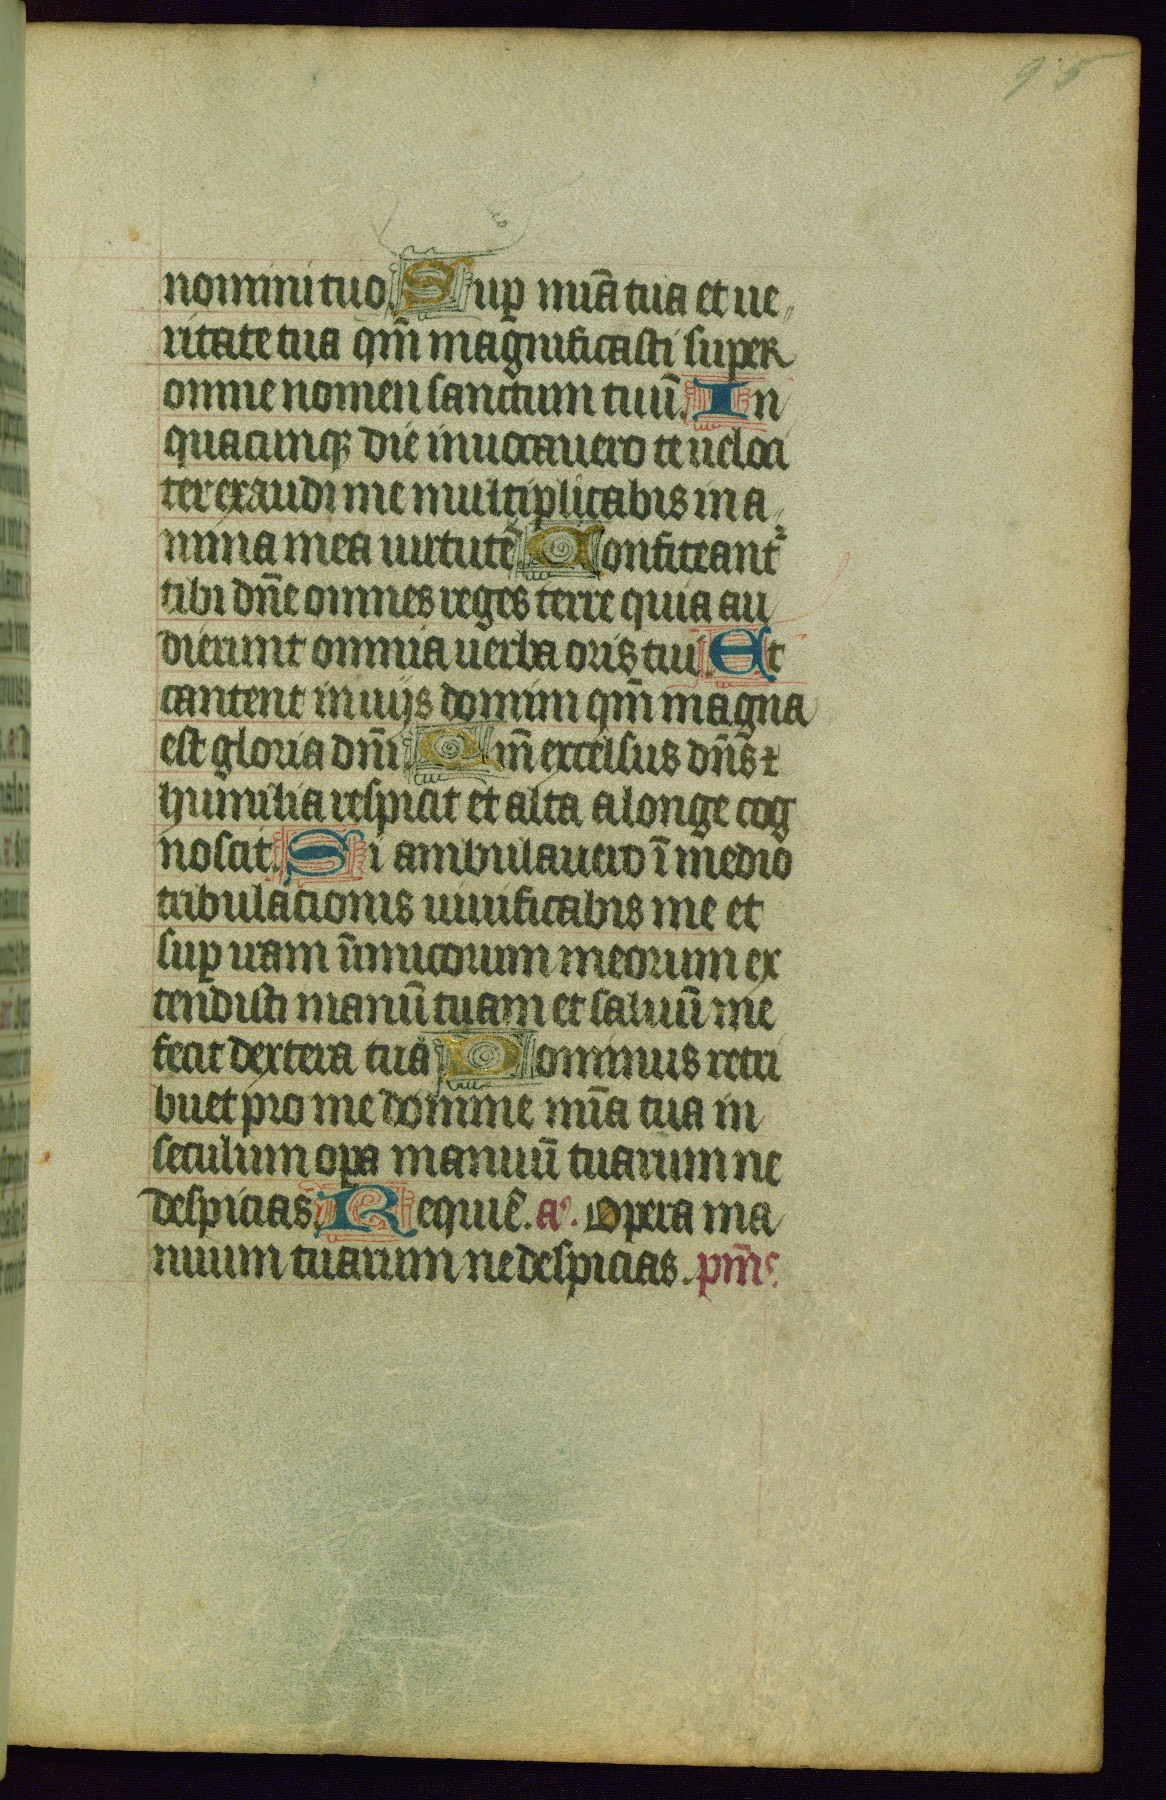 95
nomini tuo. Sup mīa tua et ue
ritate tua qm̄ magnificasti super
omne nomen sanctum tuū. In
quacunqꝫ die inuocauero te ueloci
ter exaudi me multiplicabis in a
nima mea uirtutē. Confiteant᷑
tibi dn̄e omnes reges terre quia au
dierunt omnia uerba oris tui. Et
cantent in uijs domini qm̄ magna
est gloria dn̄i. Qm̄ excelsus dn̄s ⁊
humilia respicit et alta a longe cog
noscit. Si ambulauero ī medio
tribulacionis uiuificabis me et
suꝑ iram inimicorum meorum ex
tendisti manū tuam et saluū me
fecit dextera tua. Dominus retri
buet pro me domine mīa tua in
seculum oꝑa manuū tuarum ne
despicias. Requiē. a᷒. Opera ma
nuum tuarum ne despicias. pm̄s